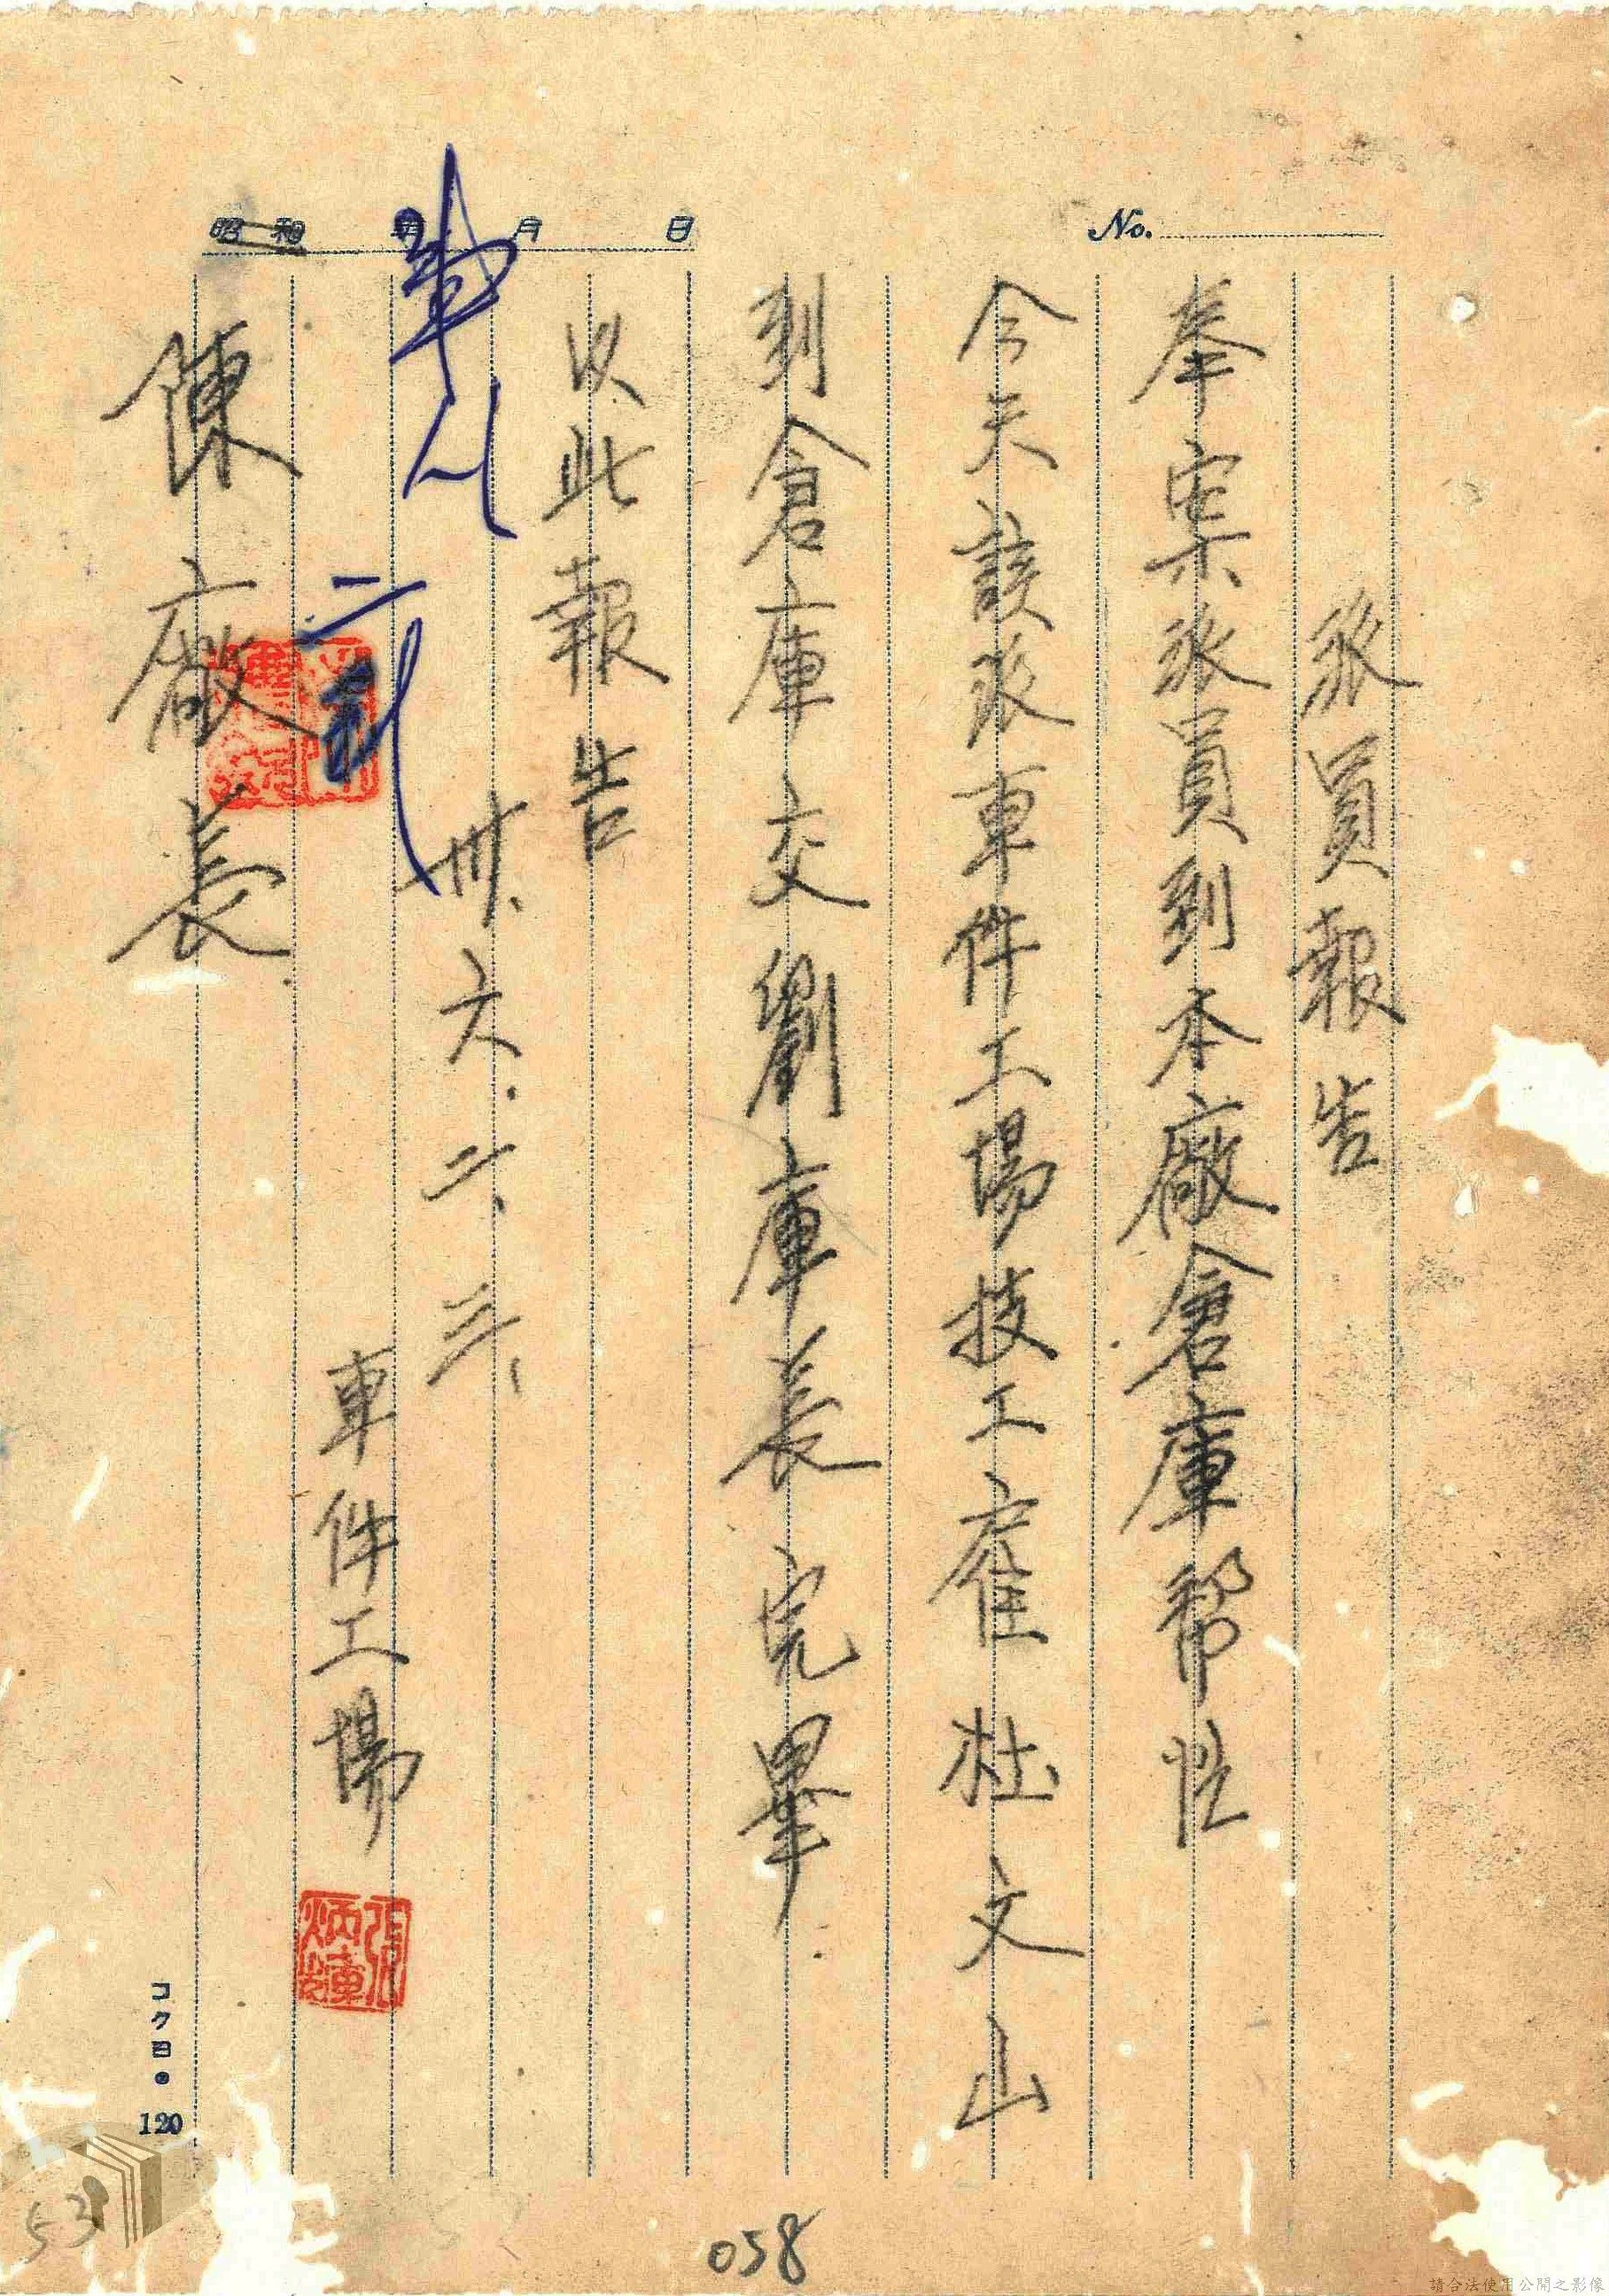 No.
昭和 年 月 日
派員報告
奉案派員到本廠倉庫幫忙
今天該派車件工場技工雇杜文山
到倉庫交劉庫長完畢.
以此報告
卅、六.二、三、
車件工場
陳廠長
コクヨ● 120
53
058
請合法使用公開之影像